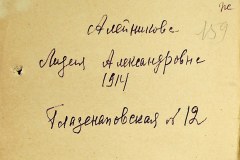 159
Алейникова
Лидия Александровна
1914
Глазенаповская № 12